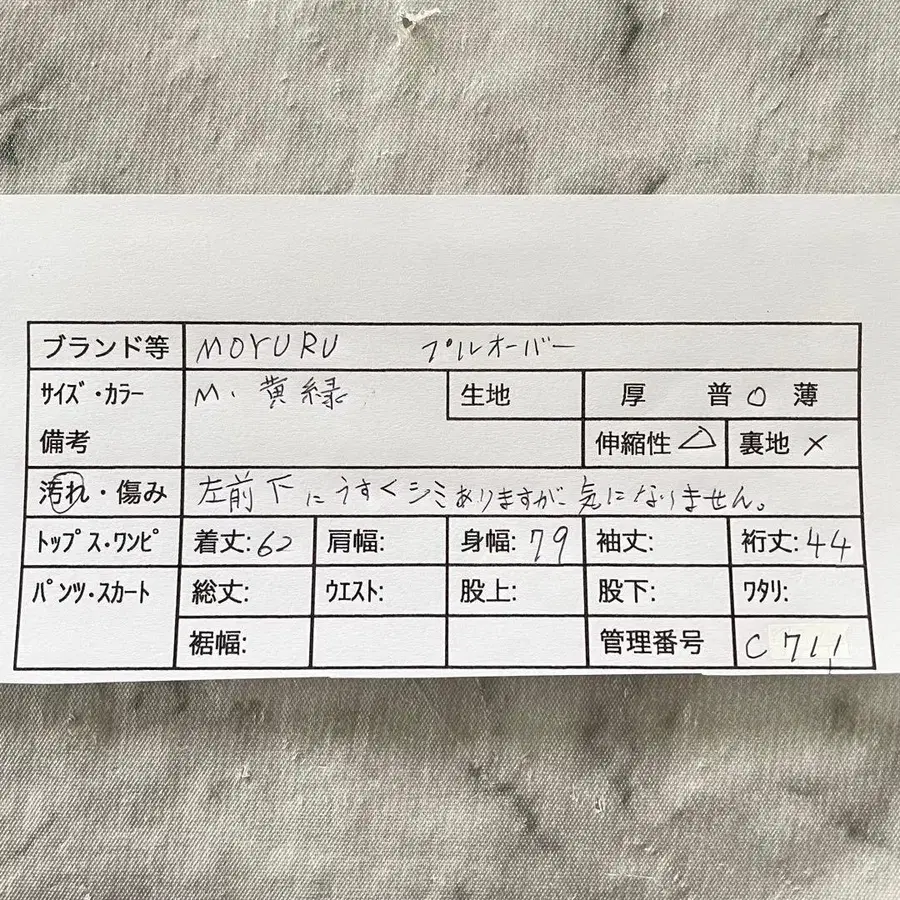 ブランド等 MOYURU プルオーバー
サイズ・カラー M. 黄緑 生地 厚 普 ○ 薄
備考 伸縮性 △ 裏地 ×
汚れ・傷み 左前下にうすくシミありますが気になりません。
トップス・ワンピ 着丈:62 肩幅: 身幅:79 袖丈: 裄丈:44
パンツ・スカート 総丈: ウエスト: 股上: 股下: ワタリ:
裾幅: 管理番号 C711